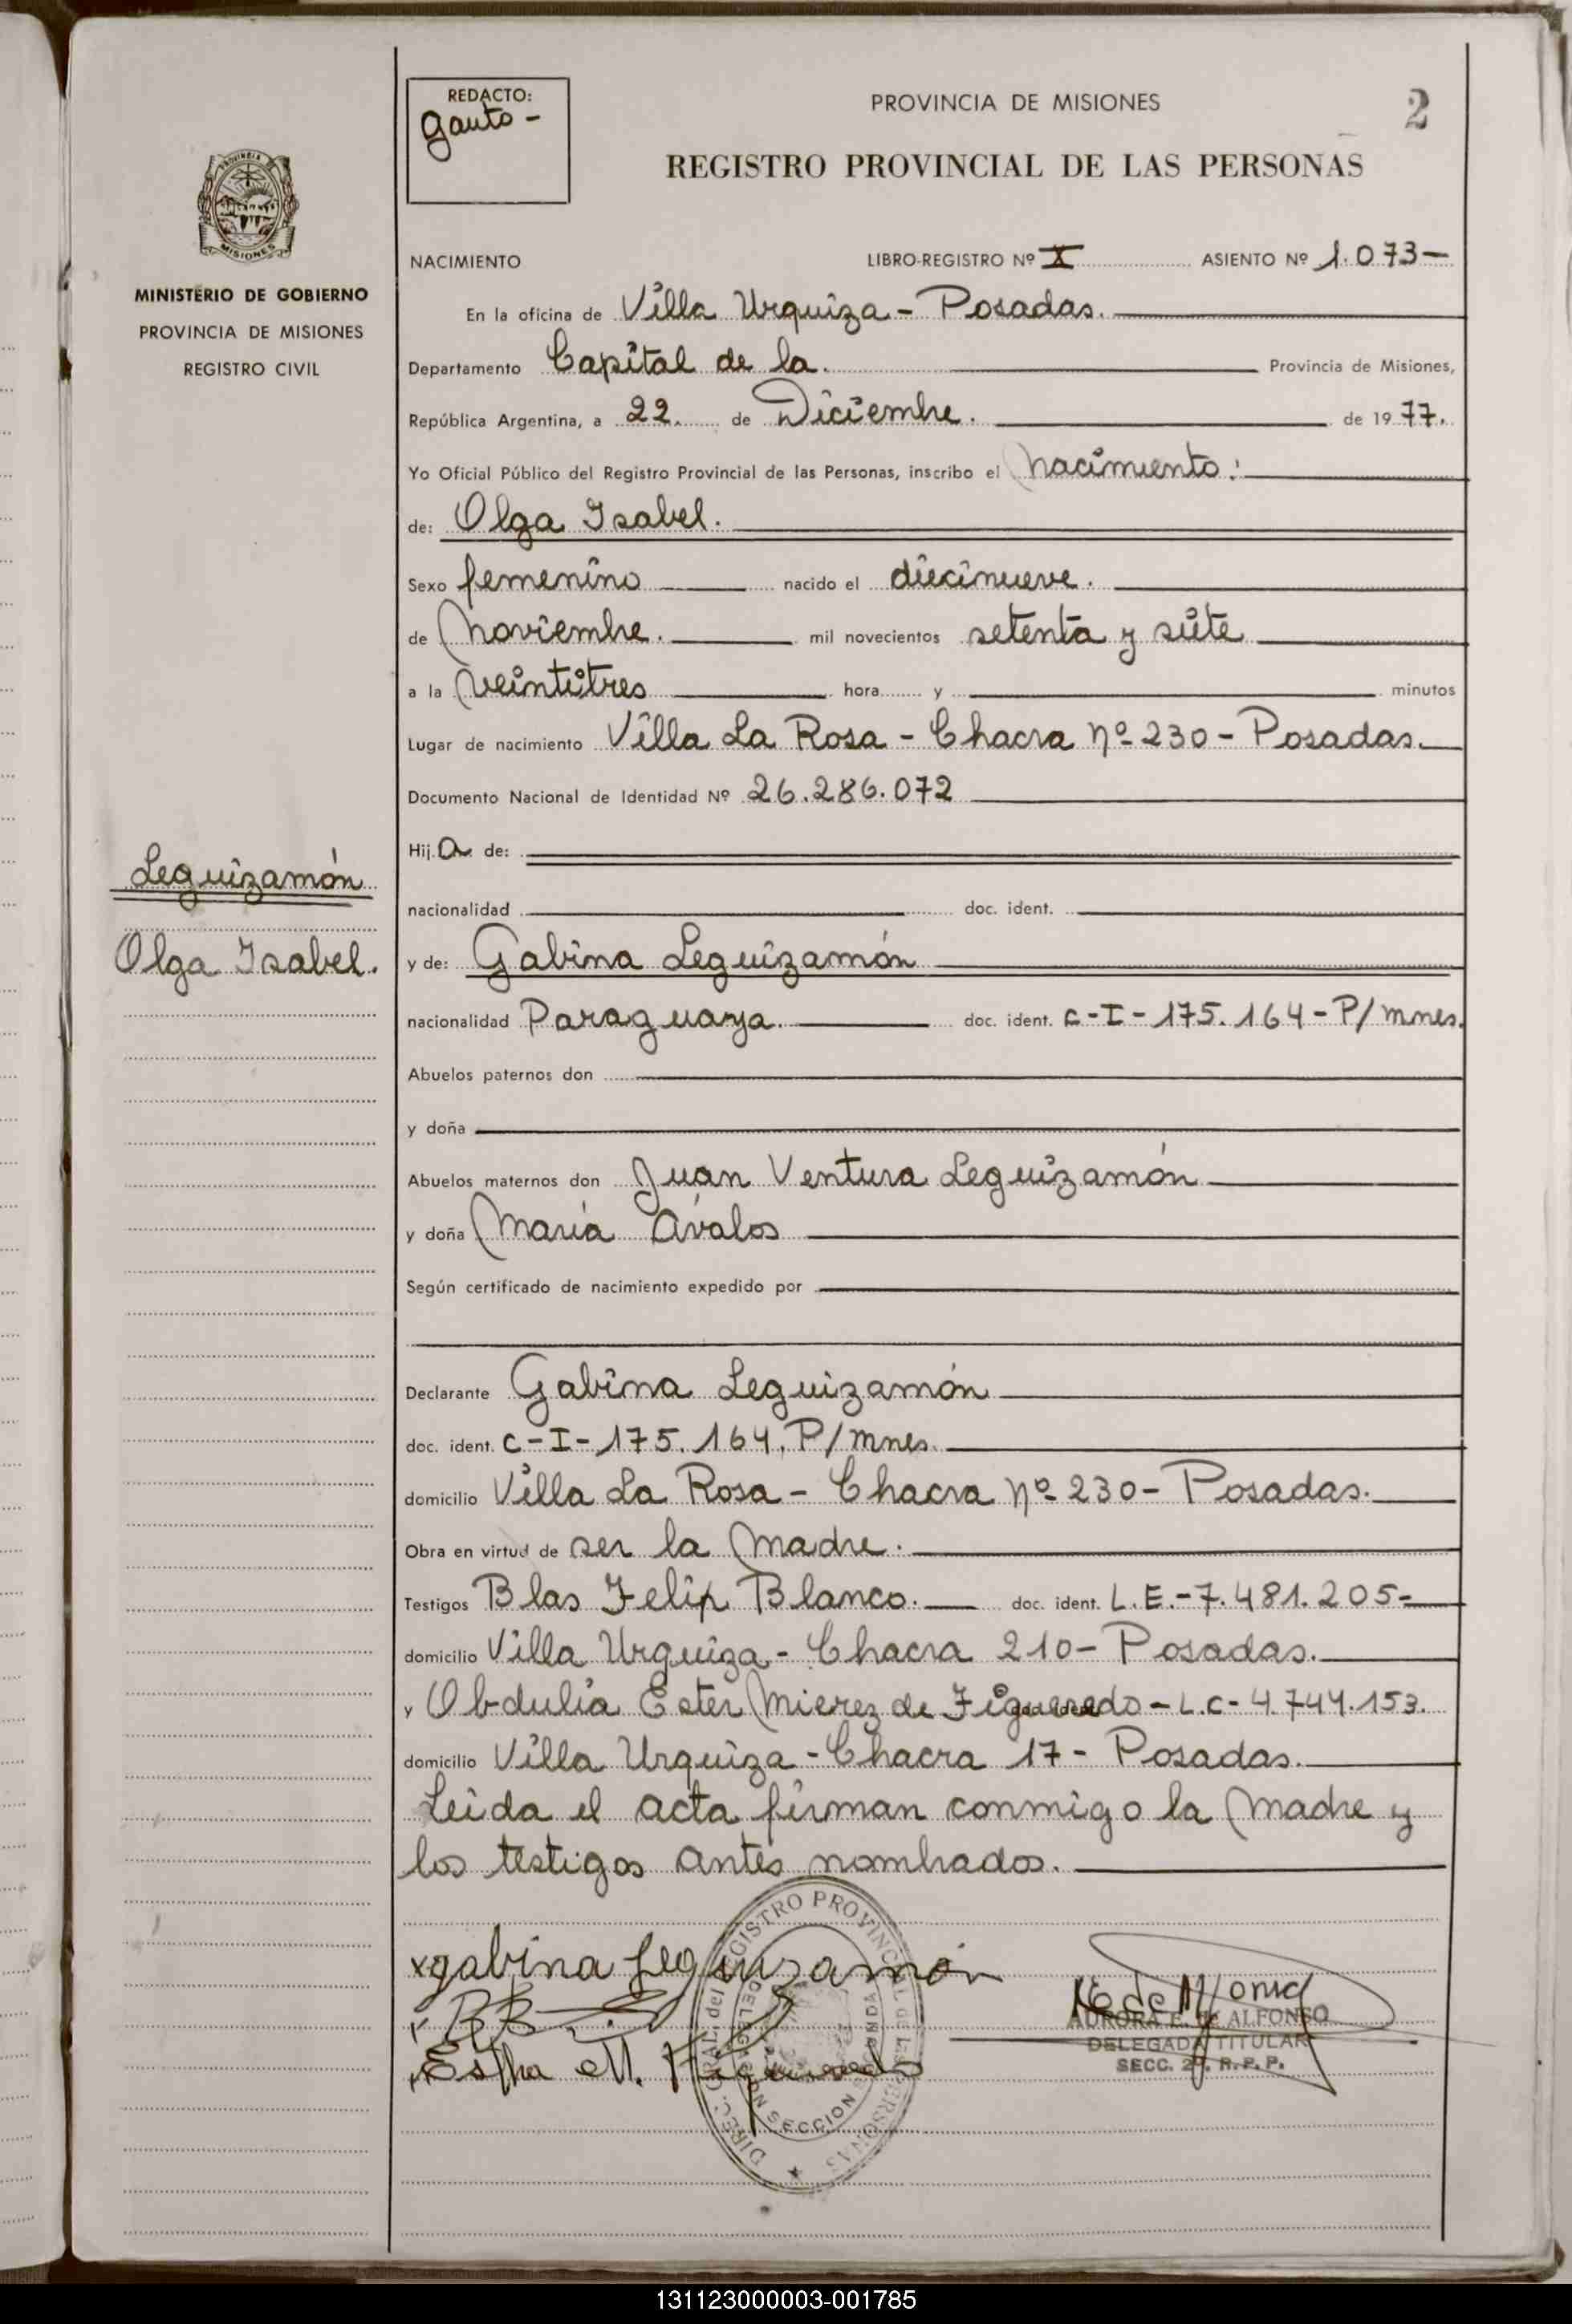 REDACTO:
Gauto -
PROVINCIA DE MISIONES
2
REGISTRO PROVINCIAL DE LAS PERSONAS
PROVINCIA DE
MISIONES
MINISTERIO DE GOBIERNO
PROVINCIA DE MISIONES
REGISTRO CIVIL
NACIMIENTO LIBRO-REGISTRO Nº X ASIENTO Nº 1.073-
En la oficina de Villa Urquiza - Posadas.
Departamento Capital de la. Provincia de Misiones,
República Argentina, a 22. de Diciembre. de 1977.
Yo Oficial Público del Registro Provincial de las Personas, inscribo el nacimiento:
de: Olga Isabel.
Sexo femenino nacido el diecinueve.
de Noviembre. mil novecientos setenta y siete
a la veintitres hora y minutos
Lugar de nacimiento Villa La Rosa - Chacra Nº 230 - Posadas.
Documento Nacional de Identidad Nº 26.286.072
Hij a de:
nacionalidad doc. ident.
y de: Gabina Leguizamón
nacionalidad Paraguaya. doc. ident. C-I-175.164-P/mnes.
Abuelos paternos don
y doña
Abuelos maternos don Juan Ventura Leguizamón
y doña María Avalos
Según certificado de nacimiento expedido por
Declarante Gabina Leguizamón
doc. ident. C-I-175.164. P/mnes.
domicilio Villa La Rosa - Chacra Nº 230 - Posadas.
Obra en virtud de ser la madre.
Testigos Blas Felip Blanco. doc. ident. L.E.-7.481.205-
domicilio Villa Urquiza - Chacra 210 - Posadas.
y Obdulia Ester Mierez de Figueredo - L.C- 4.744.153.
domicilio Villa Urquiza - Chacra 17 - Posadas.
Leida el acta firman conmigo la madre y
los testigos antes nombrados.
Leguizamón
Olga Isabel.
xgabina Leguizamón
DIREC. GRAL. del REGISTRO PROVINCIAL DE LAS PERSONAS
DELEGACION SECCION SEGUNDA
AURORA E. de ALFONSO
DELEGADA TITULAR
SECC. 2ª. R. P. P.
131123000003-001785